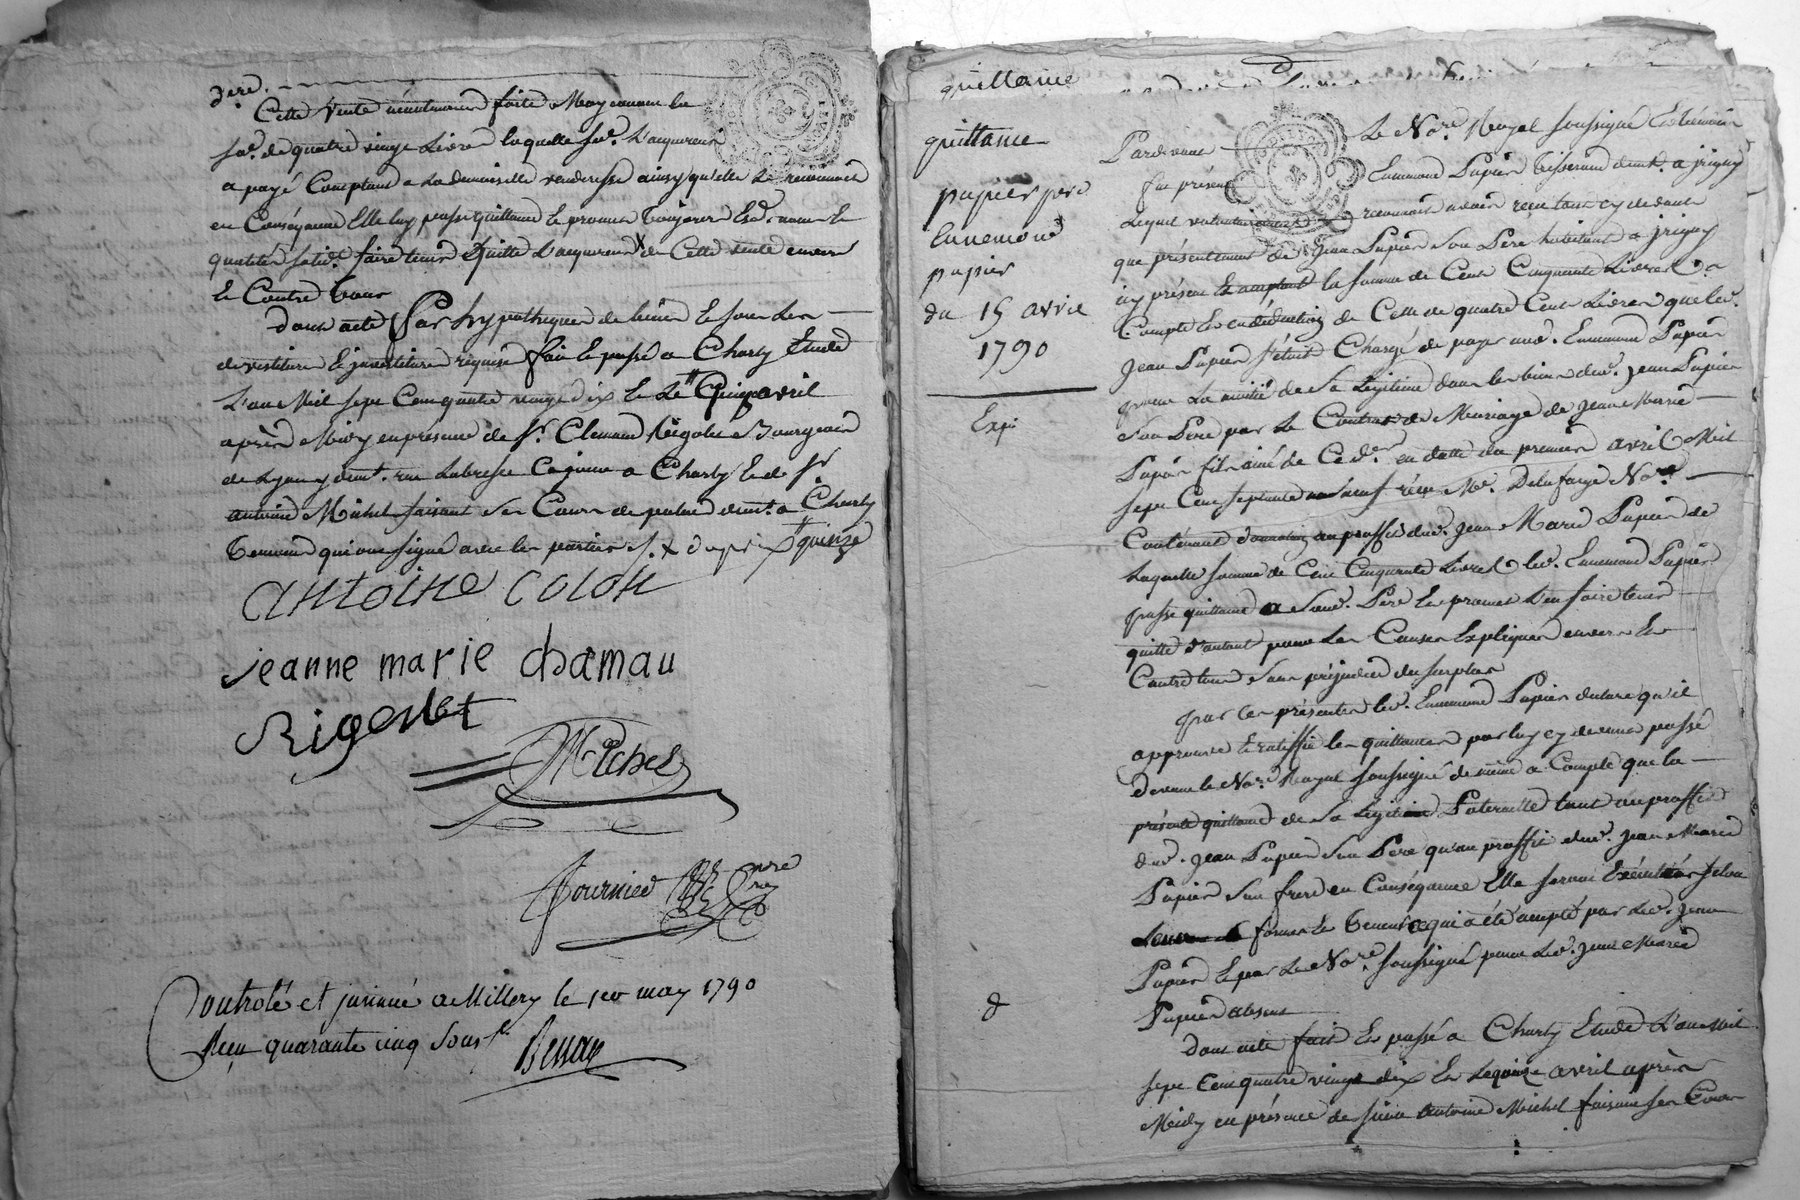 dere.
Cette vente ainsi faite Moyennant la
so.e de quatre vingt Livres laquelle so.e L'acquereur
a payé Comptant a La demoiselle venderesse ainsy qu'elle Le reconnoit
en Conséquence Elle luy passe quittance Et promet
faire tenir quitte L'acquereur de Cette vente envers
Et Contre tous
dont acte Par hypotheques de biens Et sous les
devestiture Et investiture requise fait Et passé a Charly Etude
L'an Mil sept Cent quatre vingt dix Et Le avril
après Midy en présence de Sr. Clement Bourgeois
de Lyon y demt. rue a Charly Et de Sr.
antoine Michel faisant Son Cours de demt. a Charly
temoins qui ont signé avec les parties quinze
antoine colon
jeanne marie chamau
Rigollet
Michel
Fournier
Controlé et insinué a Millery le 1er may 1790
Reçu quarante cinq sous
quittance
quittance
papier pere
Ennemond
papier
du 15 avril
1790
Expé
Pardevant Le No.re Royal soussigné Et témoins
fut présent Ennemond Papier Tisserand demt. a jrigny
Lequel volontairement reconnoit avoir reçu tant cy devant
que présentement de Jean Papier Son Pere habitant a jrigny
icy présent la somme de Cent Cinquante Livres a
Compte Et en déduction de Celle de quatre Cent Livres que led.
Jean Papier s'étoit Chargé de payer aud. Ennemond Papier
pour La moitié de Sa Légitime dans les biens dud. Jean Papier
Son Pere par Le Contrat de Mariage de Jean Marie
Papier fils ainé de Ce d.er en datte du premier avril Mil
sept Cent Septante neuf reçu Me. Delafarge No.re
Contenant donation au proffit dud. Jean Marie Papier de
Laquelle somme de Cent Cinquante Livres led. Ennemond Papier
passe quittance a Sond. Pere Et promet L'en faire tenir
quitte d'autant pour Les Causes Expliquées envers Et
Contre tous Sans préjudice du Surplus
par ces présentes led. Ennemond Papier declare qu'il
approuve Et ratiffie les quittances par luy cy devant passé
devant le No.re Royal soussigné de même a Compte que la
présente quittance de Sa Légitime Paternelle tant au proffit
dud. Jean Papier Son Pere qu'au proffit dud. Jean Marie
Papier Son frere en Conséquence Elle seront Exécutées selon
forme Et teneur ce qui a été accepté par Led. Jean
Papier Et par Le No.re soussigné pour Led. Jean Marie
Papier absent
dont acte fait Et passé a Charly Etude L'an Mil
sept Cent quatre vingt dix Et Le quinze avril après
Midy en présence de sieur Antoine Michel faisant Son Cours